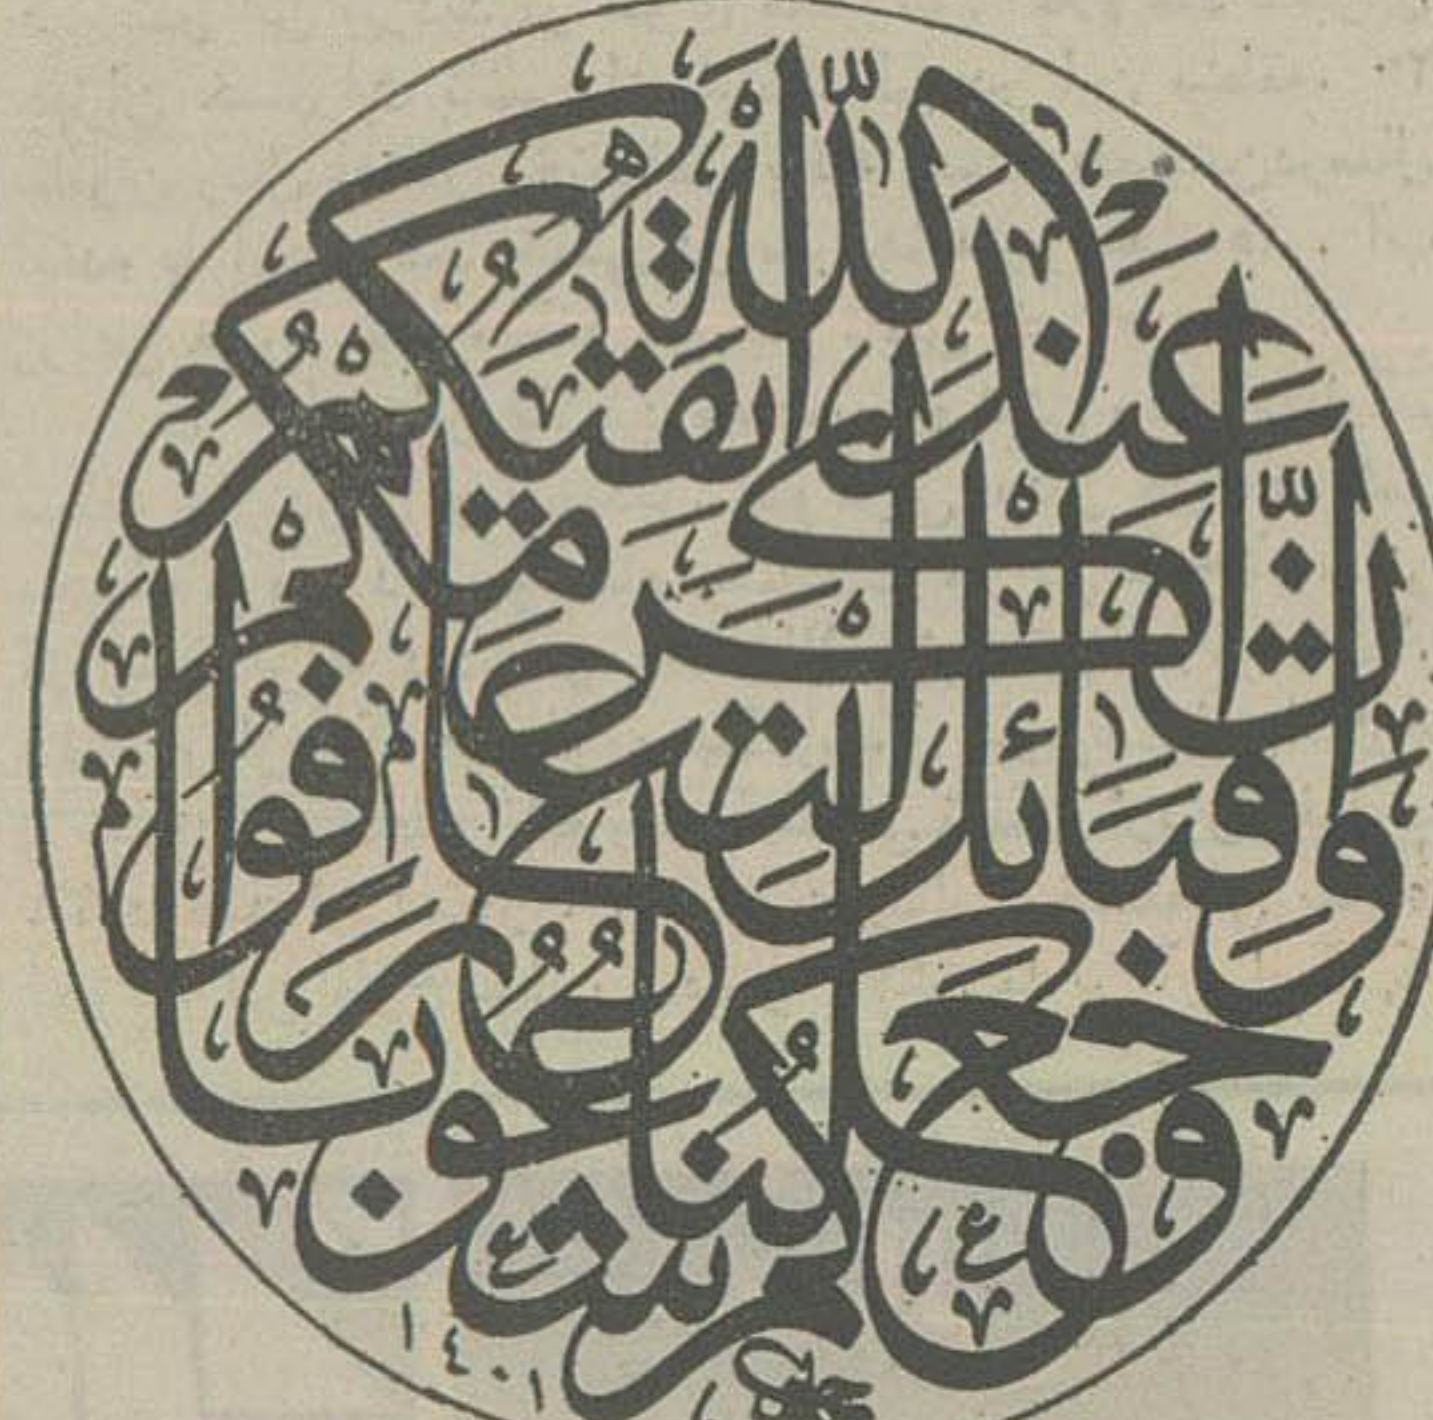 وَجَعَلْنَاكُمْ شُعُوبًا
وَقَبَائِلَ لِتَعَارَفُوا
إِنَّ أَكْرَمَكُمْ
عِنْدَ اللَّهِ أَتْقَيكُمْ
١٤٠١